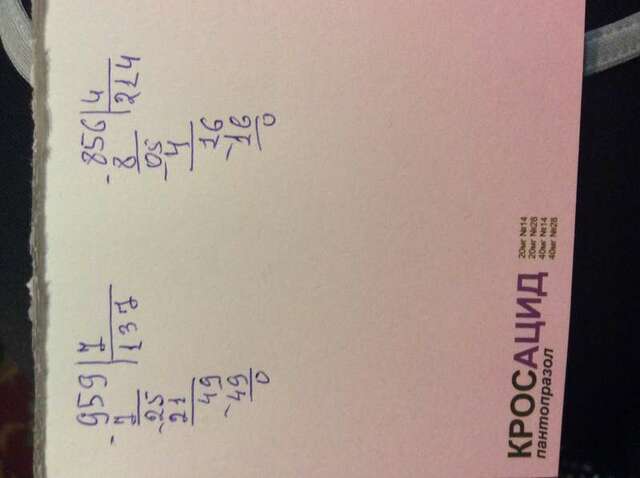 - 959 | 7
7 | 137
- 25
21
49
- 49
0
- 856 | 4
8 | 214
- 05
4
16
- 16
0
КРОСАЦИД
пантопразол
20мг №14
20мг №28
40мг №14
40мг №28